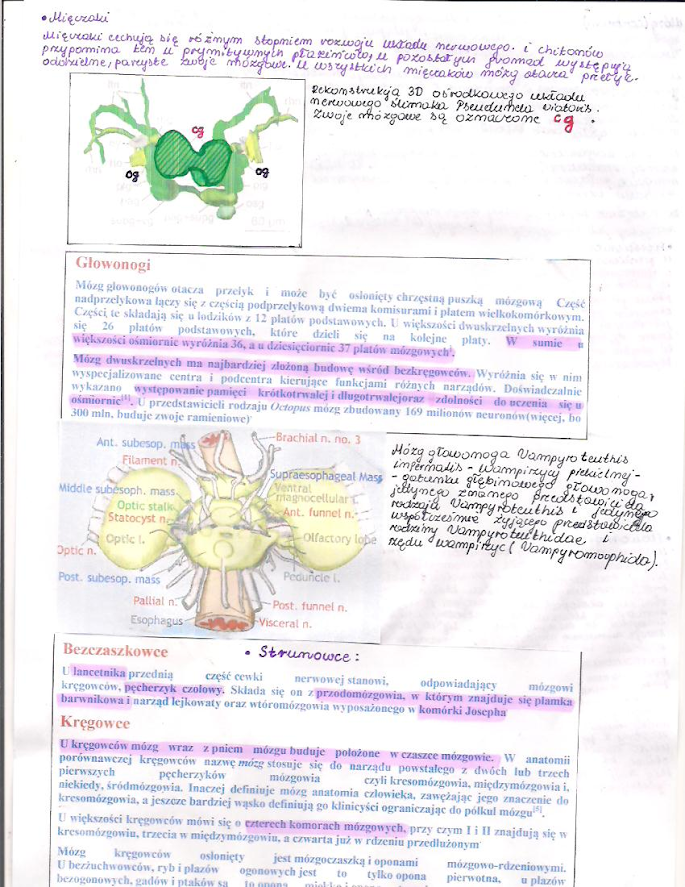 • Mięczaki
Mięczaki cechują się różnym stopniem rozwoju układu nerwowego. i chitonów
przypomina ten u prymitywnych płazińców, u pozostałych gromad występują
oddzielne, parzyste zwoje mózgowe. U wszystkich mięczaków mózg otacza przełyk.
Rekonstrukcja 3D ośrodkowego układu
nerwowego ślimaka Pseudunela viatoris.
Zwoje mózgowe są oznaczone cg.
cg
og
og
Głowonogi
Mózg głowonogów otacza przełyk i może być osłonięty chrzęstną puszką mózgową Część
nadprzełykowa łączy się z częścią podprzełykową dwiema komisurami i płatem wielkokomórkowym.
Części te składają się u łodzików z 12 płatów podstawowych. U większości dwuskrzelnych wyróżnia
się 26 płatów podstawowych, które dzieli się na kolejne płaty. W sumie u
większości ośmiornic wyróżnia 36, a u dziesięciornic 37 płatów mózgowych.
Mózg dwuskrzelnych ma najbardziej złożoną budowę wśród bezkręgowców. Wyróżnia się w nim
wyspecjalizowane centra i podcentra kierujące funkcjami różnych narządów. Doświadczalnie
wykazano występowanie pamięci krótkotrwałej i długotrwałejoraz zdolności do uczenia się u
ośmiornic U przedstawicieli rodzaju Octopus mózg zbudowany 169 milionów neuronów(więcej, bo
300 mln, buduje zwoje ramieniowe)
Ant. subesop. mass
Brachial n. no. 3
Filament n.
Supraesophageal Mass
Middle subesoph. mass
Ventral
magnocellular l.
Optic stalk
Ant. funnel n.
Statocyst n.
Optic l.
Olfactory lobe
Optic n.
Peduncle l.
Post. subesop. mass
Pallial n.
Post. funnel n.
Esophagus
Visceral n.
Mózg głowonoga Vampyroteuthis
infernalis - wampirzycy piekielnej -
- gatunku głębinowego głowonoga,
jedynego znanego przedstawiciela
rodzaju Vampyroteuthis i jedynego
współcześnie żyjącego przedstawiciela
rodziny Vampyroteuthidae i
rzędu wampirzyc (Vampyromorphida).
Bezczaszkowce
• Strunowce:
U lancetnika przednią część cewki nerwowej stanowi, odpowiadający mózgowi
kręgowców, pęcherzyk czołowy. Składa się on z przodomózgowia, w którym znajduje się plamka
barwnikowa i narząd lejkowaty oraz wtóromózgowia wyposażonego w komórki Josepha
Kręgowce
U kręgowców mózg wraz z pniem mózgu buduje położone w czaszce mózgowie. W anatomii
porównawczej kręgowców nazwę mózg stosuje się do narządu powstałego z dwóch lub trzech
pierwszych pęcherzyków mózgowia czyli kresomózgowia, międzymózgowia i,
niekiedy, śródmózgowia. Inaczej definiuje mózg anatomia człowieka, zawężając jego znaczenie do
kresomózgowia, a jeszcze bardziej wąsko definiują go klinicyści ograniczając do półkul mózgu[5].
U większości kręgowców mówi się o czterech komorach mózgowych, przy czym I i II znajdują się w
kresomózgowiu, trzecia w międzymózgowiu, a czwarta już w rdzeniu przedłużonym
Mózg kręgowców osłonięty jest mózgoczaszką i oponami mózgowo-rdzeniowymi.
U bezżuchwowców, ryb i płazów ogonowych jest to tylko opona pierwotna, u płazów
bezogonowych, gadów i ptaków są to opona